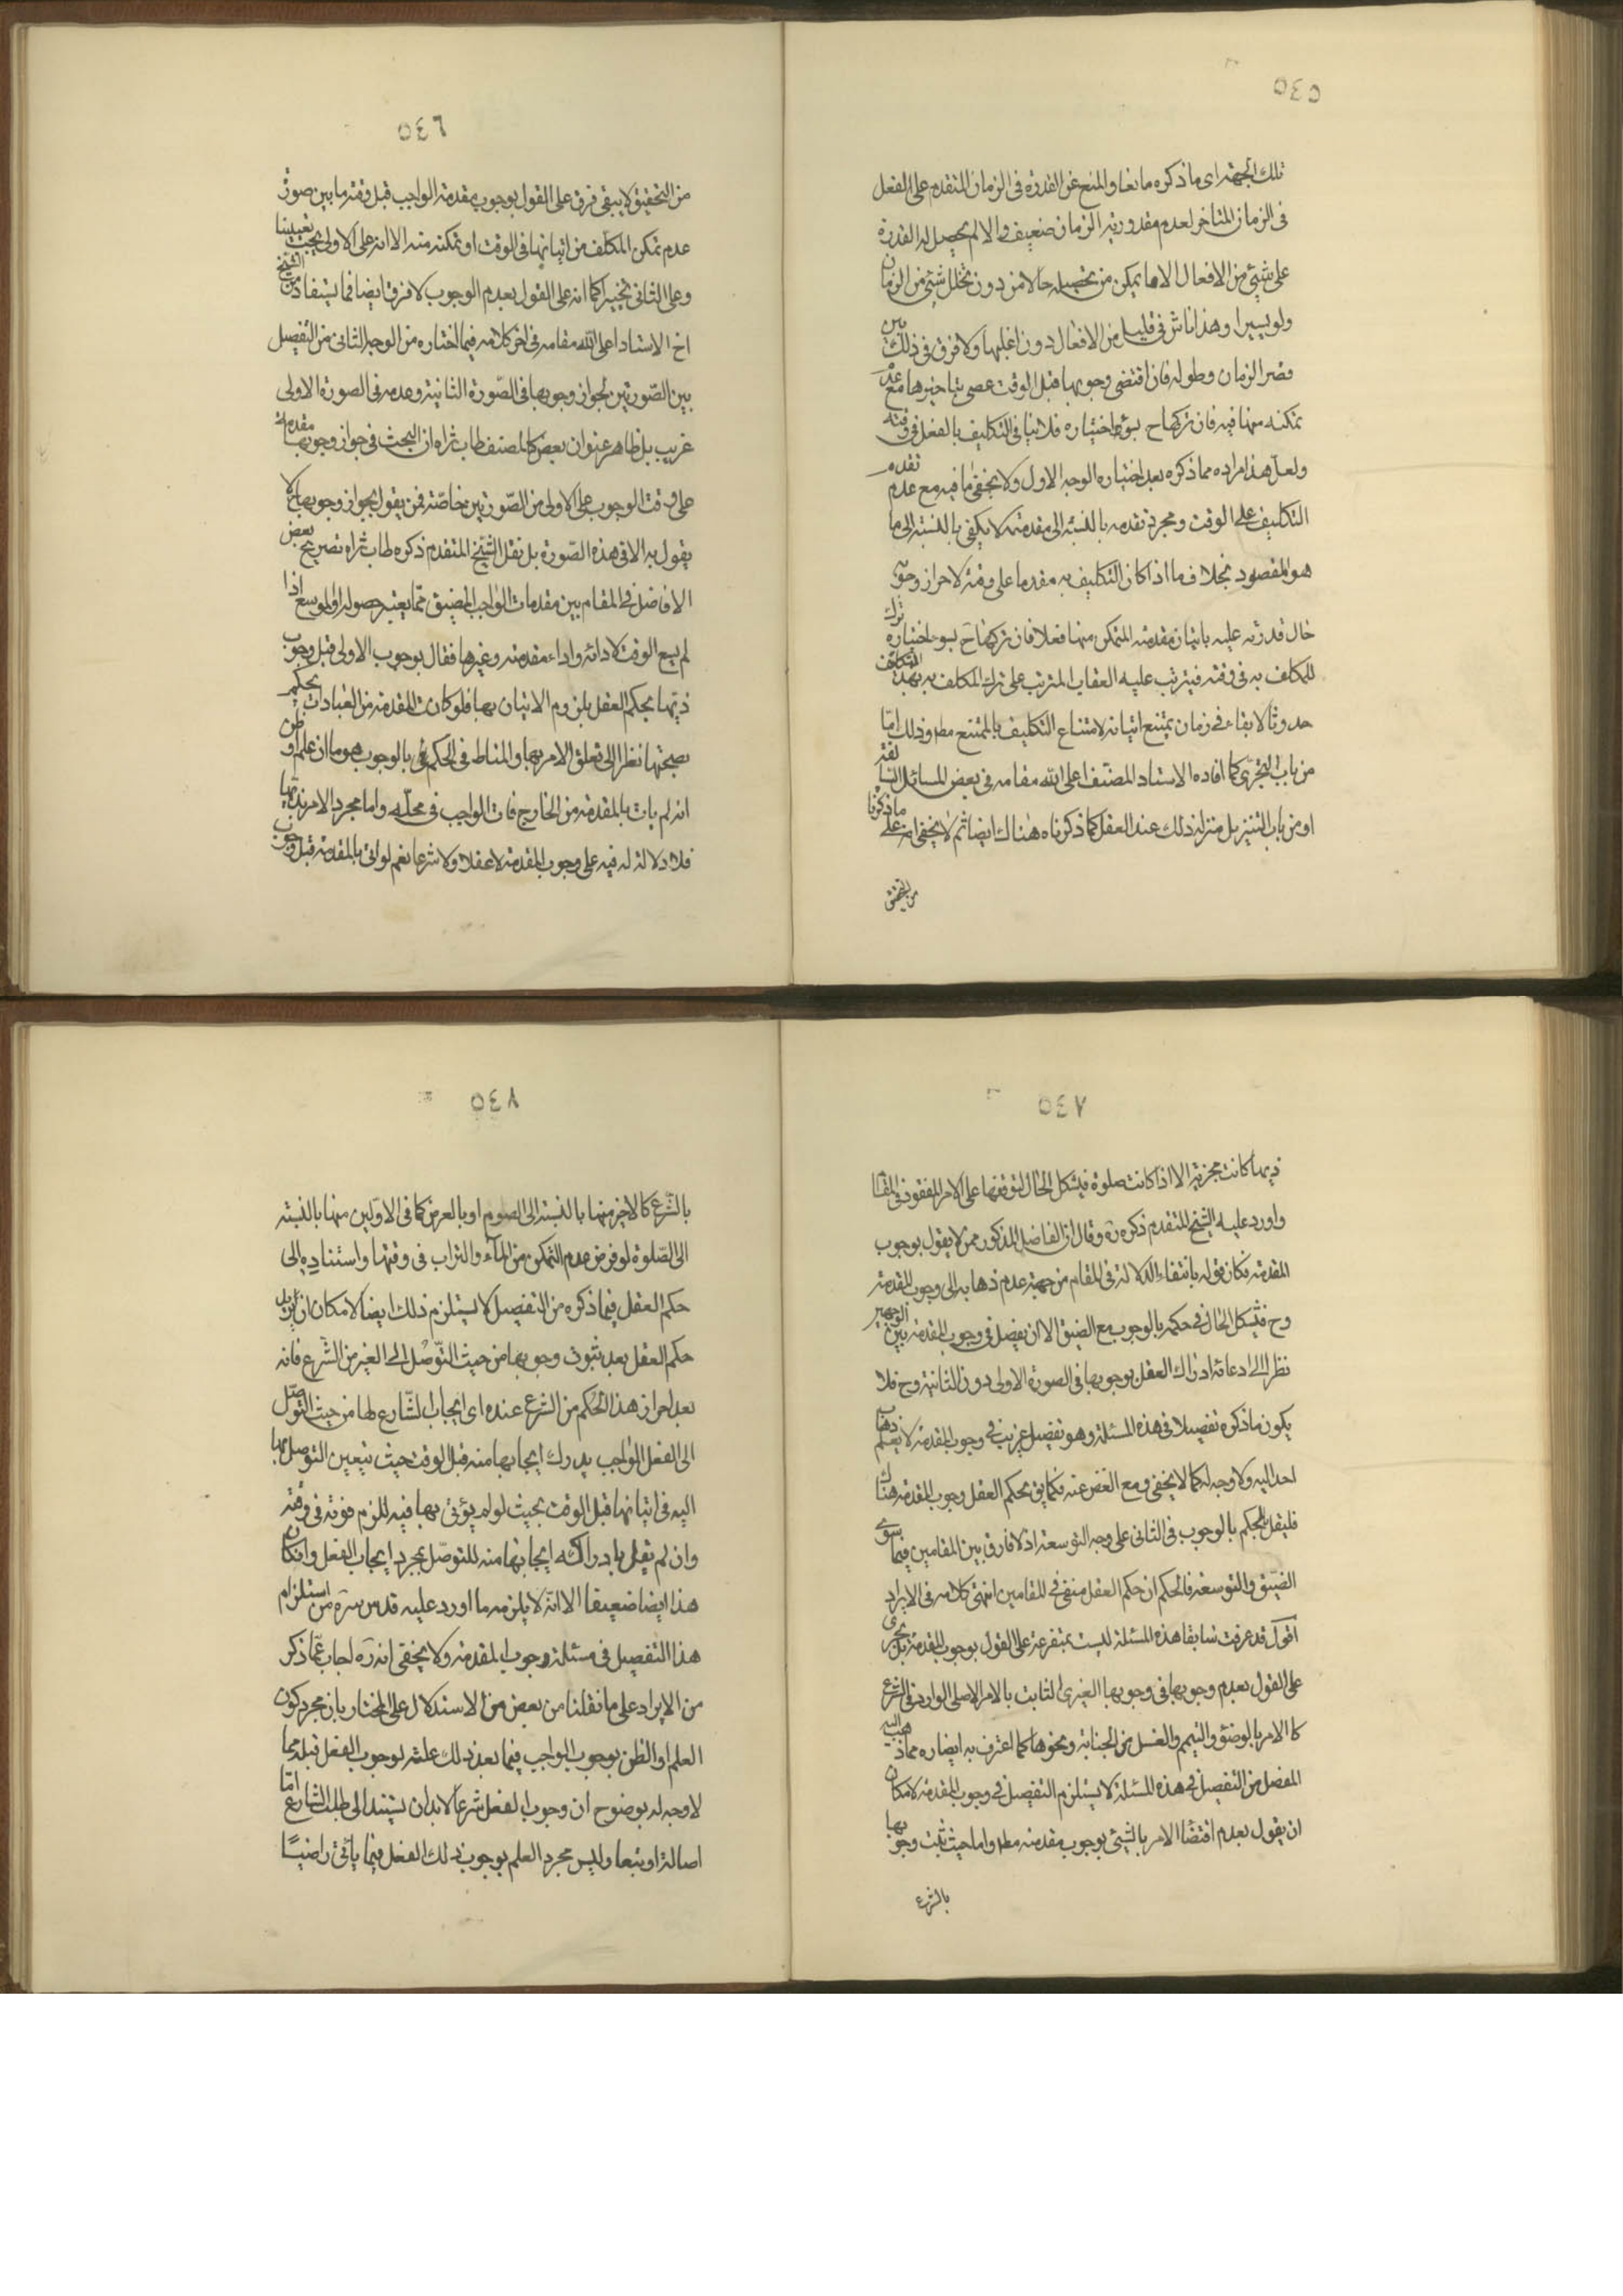 ٥٤٥
تلك الجهة اى ما ذكره مانعا والمنع عن القدرة فى الزمان المتقدم على الفعل
فى الزمان المتاخر لعدم مقدورية الزمان ضعيف والا لم يحصل له القدرة
على شيئ من الافعال الا ما يمكن من تحصيله حالا من دون تخلل شيئ من الزمان
ولو يسيرا وهذا ناش فى قليل من الافعال دون اغلبها ولا فرق فى ذلك بين
قصر الزمان وطوله فان اقتضى وجوبها قبل الوقت عصى بتاخيرها مع عدم
تمكنه منها فيه فان تركها ح بسوء اختياره فلا ينافى التكليف بالفعل فى وقته
ولعل هذا مراده مما ذكره بعد اختياره الوجه الاول ولا يخفى ما فيه مع عدم تقدم
التكليف على الوقت ومجرد تقدمه بالنسبة الى مقدمته لا يكفى بالنسبة الى ما
هو المقصود بخلاف ما اذا كان التكليف به مقدما على وقته لاحراز وجوبه
حال قدرته عليه باتيان مقدمته المتمكن منها فعلا فان تركها ح بسوء اختياره ترك
للمكلف به فى وقته فيترتب عليه العقاب المترتب على ترك المكلف به بهذا التكليف
حدوثا لا بقاء فى زمان يمتنع اتيانه لامتناع التكليف بالممتنع مط وذلك امّا
من باب التجرّى كما افاده الاستاد المصنف اعلى الله مقامه فى بعض المسائل السابقة
او من باب التنزيل منزلة ذلك عند العقل كما ذكرناه هناك ايضا ثم لا يخفى انه على ما ذكرنا
من التحقيق
٥٤٦
من التحقيق لا يبقى فرق على القول بوجوب مقدمة الواجب قبل وقته ما بين صورة
عدم تمكن المكلف من اتيانها فى الوقت او تمكنه منه الا انه على الاولى يجب تعيينا
وعلى الثانى تخييرا كما انه على القول بعدم الوجوب لا فرق ايضا فما يستفاد من الشيخ
اخ الاستاد اعلى الله مقامه فى اخر كلامه فيما اختاره من الوجه الثانى من التفصيل
بين الصّورتين لجواز وجوبها فى الصّورة الثانية وعدمه فى الصورة الاولى
غريب بل ظاهر عنوان بعض كالمصنف طاب ثراه ان البحث فى جواز وجوبها مقدمة
على وقت الوجوب على الاولى من الصّورتين خاصّة فمن يقول بجواز وجوبها ح لا
يقول به الا فى هذه الصّورة بل نقل الشيخ المتقدم ذكره طاب ثراه تصريح بعض
الافاضل فى المقام بين مقدمات الواجب المضيق مما يعتبر حصوله اوالموسع اذا
لم يسع الوقت لادائه واداء مقدمته وغيرها فقال بوجوب الاولى قبل وجوب
ذيها بحكم العقل بلزوم الاتيان بها فلو كانت المقدمة من العبادات يحكم
بصحتها نظرا الى تعلق الامر بها والمناط فى الحكم بالوجوب هو ما ان علم او ظن
انه لم يات بالمقدمة من الخارج فات الواجب فى محلّه واما مجرد الامر بذيها
فلا دلالة له فيه على وجوب المقدمة لا عقلا ولا شرعا نعم لو اتى بالمقدمة قبل وجوب
٥٤٧
ذيها كانت مجزية الا اذا كانت صلوة فيشكل الحال لتوقفها على الامر المفقود فى المقام
واورد عليه الشيخ المتقدم ذكره ره وقال ان الفاضل المذكور ممن لا يقول بوجوب
المقدمة فكان قوله بانتفاء الدلالة فى المقام من جهة عدم ذهابه الى وجوب المقدمة
وح فيشكل الحال فى حكمه بالوجوب مع الضيق الا ان يفصل فى وجوب المقدمة بين الوجهين
نظرا الى ادعائه ادراك العقل بوجوبها فى الصورة الاولى دون الثانية وح فلا
يكون ما ذكره تفصيلا فى هذه المسئلة وهو تفصيل غريب فى وجوب المقدمة لا نعلم ذهاب
احد اليه ولا وجه له كما لا يخفى ومع الغض عنه فكما يق بحكم العقل وجوب المقدمة هناك
فليقل بالحكم بالوجوب فى الثانى على وجه التوسعة اذ لا فارق بين المقامين فيما سوى
الضيق والتوسعة فالحكم ان حكم العقل منتفى فى المقامين انتهى كلامه فى الايراد
اقول قد عرفت سابقا هذه المسئلة ليست بمتفرعة على القول بوجوب المقدمة بل يجرى
على القول بعدم وجوبها فى وجوبها الغيرى الثابت بالامر الاصلى الوارد فى الشرع
كالامر بالوضوء والتيمم والغسل من الجنابة ونحوها كما اعترف به ايضا ره مما ذهب اليه
المفصل من التفصيل فى هذه المسئلة لا يستلزم التفصيل فى وجوب المقدمة لامكان
ان يقول بعدم اقتضا الامر بالشيئ بوجوب مقدمته مط واما حيث ثبت وجوبها
بالشرع
٥٤٨
بالشّرع كالاخير منها بالنسبة الى الصوم او بالعرض كما فى الاوّلين منها بالنسبة
الى الصّلوة لو فرض عدم التمكن من المآء والتراب فى وقتها واستناده الى
حكم العقل فيما ذكره من التفصيل لا يستلزم ذلك ايضا لامكان ان يريد
حكم العقل بعد ثبوت وجوبها من حيث التوّصل الى الغير من الشّرع فانه
بعد احراز هذا الحكم من الشرع عنده اى ايجاب الشّارع لها من حيث التوصّل
الى الفعل الواجب يدرك ايجابها منه قبل الوقت حيث يتعين التوصل بها
اليه فى اتيانها قبل الوقت بحيث لو لم يؤتى بها فيه للزم فوته فى وقته
وان لم يقل بادراكه ايجابها منه للتوصّل بمجرد ايجاب الفعل وان كان
هذا ايضا ضعيفا الا انّه لا يلزمه ما اورد عليه قدس سره من استلزام
هذا التفصيل فى مسئلة وجوب المقدمة ولا يخفى انه ره اجاب عمّا ذكر
من الايراد على ما نقلنا من بعض من الاستدلال على المختار بان مجرد كون
العلم او الظن بوجوب الواجب فيما بعد ذلك علة لوجوب الفعل قبله مما
لا وجه له بوضوح ان وجوب الفعل شرعا لابد ان يستند الى طلب الشارع امّا
اصالة او تبعا وليس مجرد العلم بوجوب ذلك الفعل فيما يأتى راضيًا